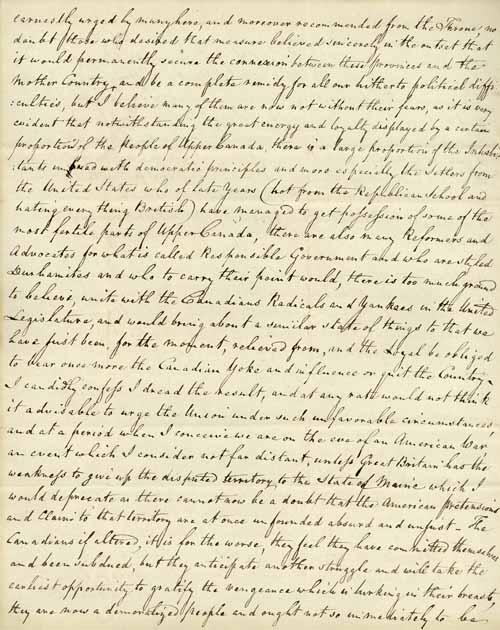 earnestly urged by many here, and moreover recommended from the Throne, no
doubt those who desired that measure believed sincerely in the outset that
it would permanently secure the connexion between these provinces and the
Mother Country and be a complete remidy for all our hitherto political diffi
:culties, but I believe many of them are now not without their fears, as it is very
evident that notwithstanding the great energy and loyalty displayed by a certain
proportion of the People of Upper Canada, there is a large proportion of the Inhabi:
:tants imbued with democratic principles and more especially the Settlers from
the United States who of late Years (hot from the Republican School and
hating every thing British) have managed to get possession of some of the
most fertile parts of Upper Canada, there are also many Reformers and
Advocates for what is called Responsible Government and who are styled
Durhamites and who to carry their point would, there is too much ground
to believe, unite with the Canadians Radicals and Yankees in the United
Legislature, and would bring about a similar state of things to that we
have just been, for the moment, relieved from, and the Loyal be obliged
to wear once more the Canadian Yoke and influence or quit the Country
I candidly confess I dread the result, and at any rate would not think
it adviseable to urge the Union under such unfavorable circumstances
and at a period when I conceive we are on the eve of an American War
an event which I consider not far distant, unless Great Britain has the
weakness to give up the disputed territory, to the State of Maine which I
would deprecate as there cannot now be a doubt that the American pretensions
and Claim to that territory are at once unfounded absurd and unjust - The
Canadians if altered, it is for the worse, they feel they have committed themselves
and been subdued, but they anticipate another struggle and will take the
earliest opportunity to gratify the vengeance which is lurking in their breasts,
they are now a demoralized people and ought not so immediately to be